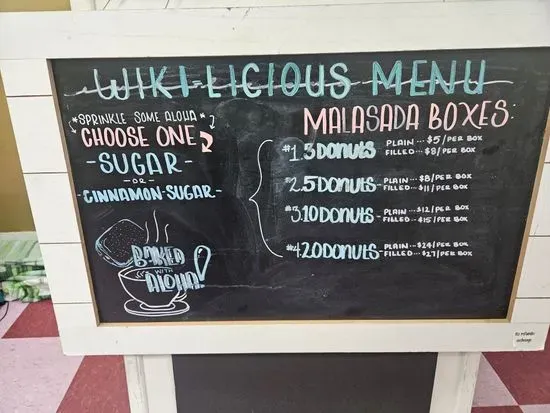 WIKI-LICIOUS MENU
*SPRINKLE SOME ALOHA*
CHOOSE ONE
-SUGAR-
-OR-
-CINNAMON-SUGAR-
BAKED
WITH
ALOHA!
MALASADA BOXES:
#1. 3 DONUTS - PLAIN... $5/PER BOX
FILLED... $8/PER BOX
#2. 5 DONUTS - PLAIN... $8/PER BOX
FILLED... $11/PER BOX
#3. 10 DONUTS - PLAIN... $12/PER BOX
FILLED... $15/PER BOX
#4. 20 DONUTS - PLAIN... $24/PER BOX
FILLED... $27/PER BOX
No refunds